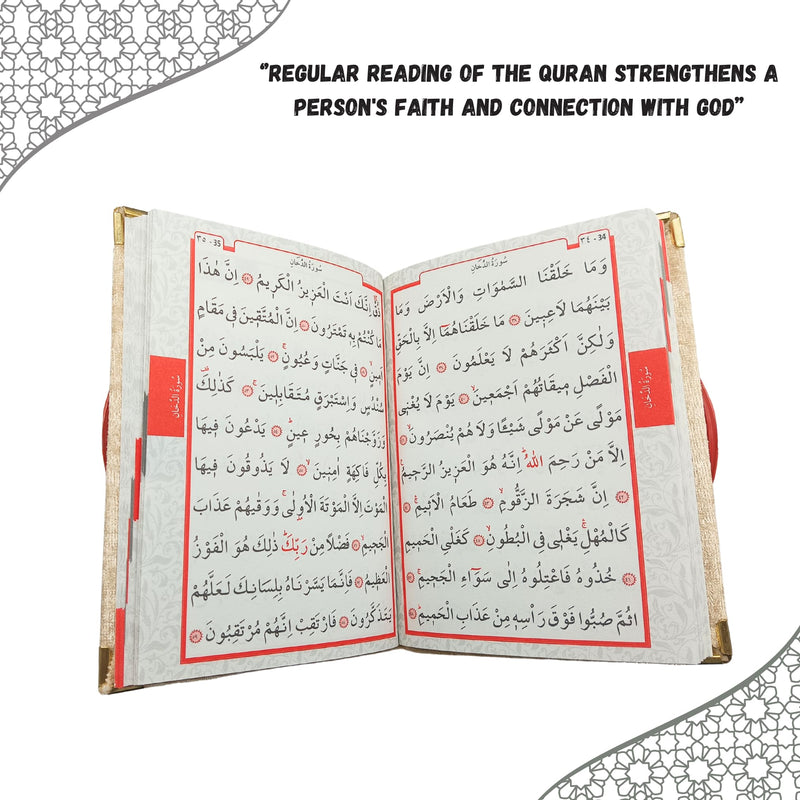 “REGULAR READING OF THE QURAN STRENGTHENS A
PERSON'S FAITH AND CONNECTION WITH GOD”
٣٤ - 34
سُورَةُ الدُّخَانِ
وَمَا خَلَقْنَا السَّمٰوَاتِ وَالْاَرْضَ وَمَا
بَيْنَهُمَا لَاعِبٖينَ ﴿٣٨﴾ مَا خَلَقْنَاهُمَٓا اِلَّا بِالْحَقِّ
وَلٰكِنَّ اَكْثَرَهُمْ لَا يَعْلَمُونَ ﴿٣٩﴾ اِنَّ يَوْمَ
الْفَصْلِ مٖيقَاتُهُمْ اَجْمَعٖينَۙ ﴿٤٠﴾ يَوْمَ لَا يُغْنٖى
مَوْلًى عَنْ مَوْلًى شَيْـًٔا وَلَا هُمْ يُنْصَرُونَۙ ﴿٤١﴾
اِلَّا مَنْ رَحِمَ اللّٰهُؕ اِنَّهُ هُوَ الْعَزٖيزُ الرَّحٖيمُ
﴿٤٢﴾ اِنَّ شَجَرَةَ الزَّقُّومِۙ ﴿٤٣﴾ طَعَامُ الْاَثٖيمِۚ ﴿٤٤﴾
كَالْمُهْلِۚ يَغْلٖى فِى الْبُطُونِۙ ﴿٤٥﴾ كَغَلْىِ الْحَمٖيمِ
﴿٤٦﴾ خُذُوهُ فَاعْتِلُوهُ اِلٰى سَوَٓاءِ الْجَحٖيمِۗ ﴿٤٧﴾
ثُمَّ صُبُّوا فَوْقَ رَاْسِهٖ مِنْ عَذَابِ الْحَمٖيمِؕ ﴿٤٨﴾
سُورَةُ الدُّخَانِ
٣٥ - 35
سُورَةُ الدُّخَانِ
ذُقْۙ اِنَّكَ اَنْتَ الْعَزٖيزُ الْكَرٖيمُ ﴿٤٩﴾ اِنَّ هٰذَا
مَا كُنْتُمْ بِهٖ تَمْتَرُونَ ﴿٥٠﴾ اِنَّ الْمُتَّقٖينَ فٖى مَقَامٍ
اَمٖينٍۙ ﴿٥١﴾ فٖى جَنَّاتٍ وَعُيُونٍۚ ﴿٥٢﴾ يَلْبَسُونَ مِنْ
سُنْدُسٍ وَاِسْتَبْرَقٍ مُتَقَابِلٖينَۚ ﴿٥٣﴾ كَذٰلِكَ۠
وَزَوَّجْنَاهُمْ بِحُورٍ عٖينٍؕ ﴿٥٤﴾ يَدْعُونَ فٖيهَا
بِكُلِّ فَاكِهَةٍ اٰمِنٖينَۙ ﴿٥٥﴾ لَا يَذُوقُونَ فٖيهَا
الْمَوْتَ اِلَّا الْمَوْتَةَ الْاُو۫لٰىۚ وَوَقٰيهُمْ عَذَابَ
الْجَحٖيمِۙ ﴿٥٦﴾ فَضْلًا مِنْ رَبِّكَؕ ذٰلِكَ هُوَ الْفَوْزُ
الْعَظٖيمُ ﴿٥٧﴾ فَاِنَّمَا يَسَّرْنَاهُ بِلِسَانِكَ لَعَلَّهُمْ
يَتَذَكَّرُونَ ﴿٥٨﴾ فَارْتَقِبْ اِنَّهُمْ مُرْتَقِبُونَ ﴿٥٩﴾
سُورَةُ الدُّخَانِ